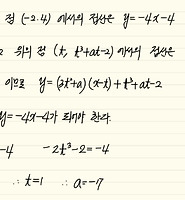 점 (-2, 4) 에서의 접선은 y=-4x-4
2 위의 점 (t, t³+at-2) 에서의 접선은
이므로 y=(3t²+a)(x-t)+t³+at-2
y=-4x-4가 되어야 한다.
-4 -2t³-2=-4
∴ t=1 ∴ a=-7